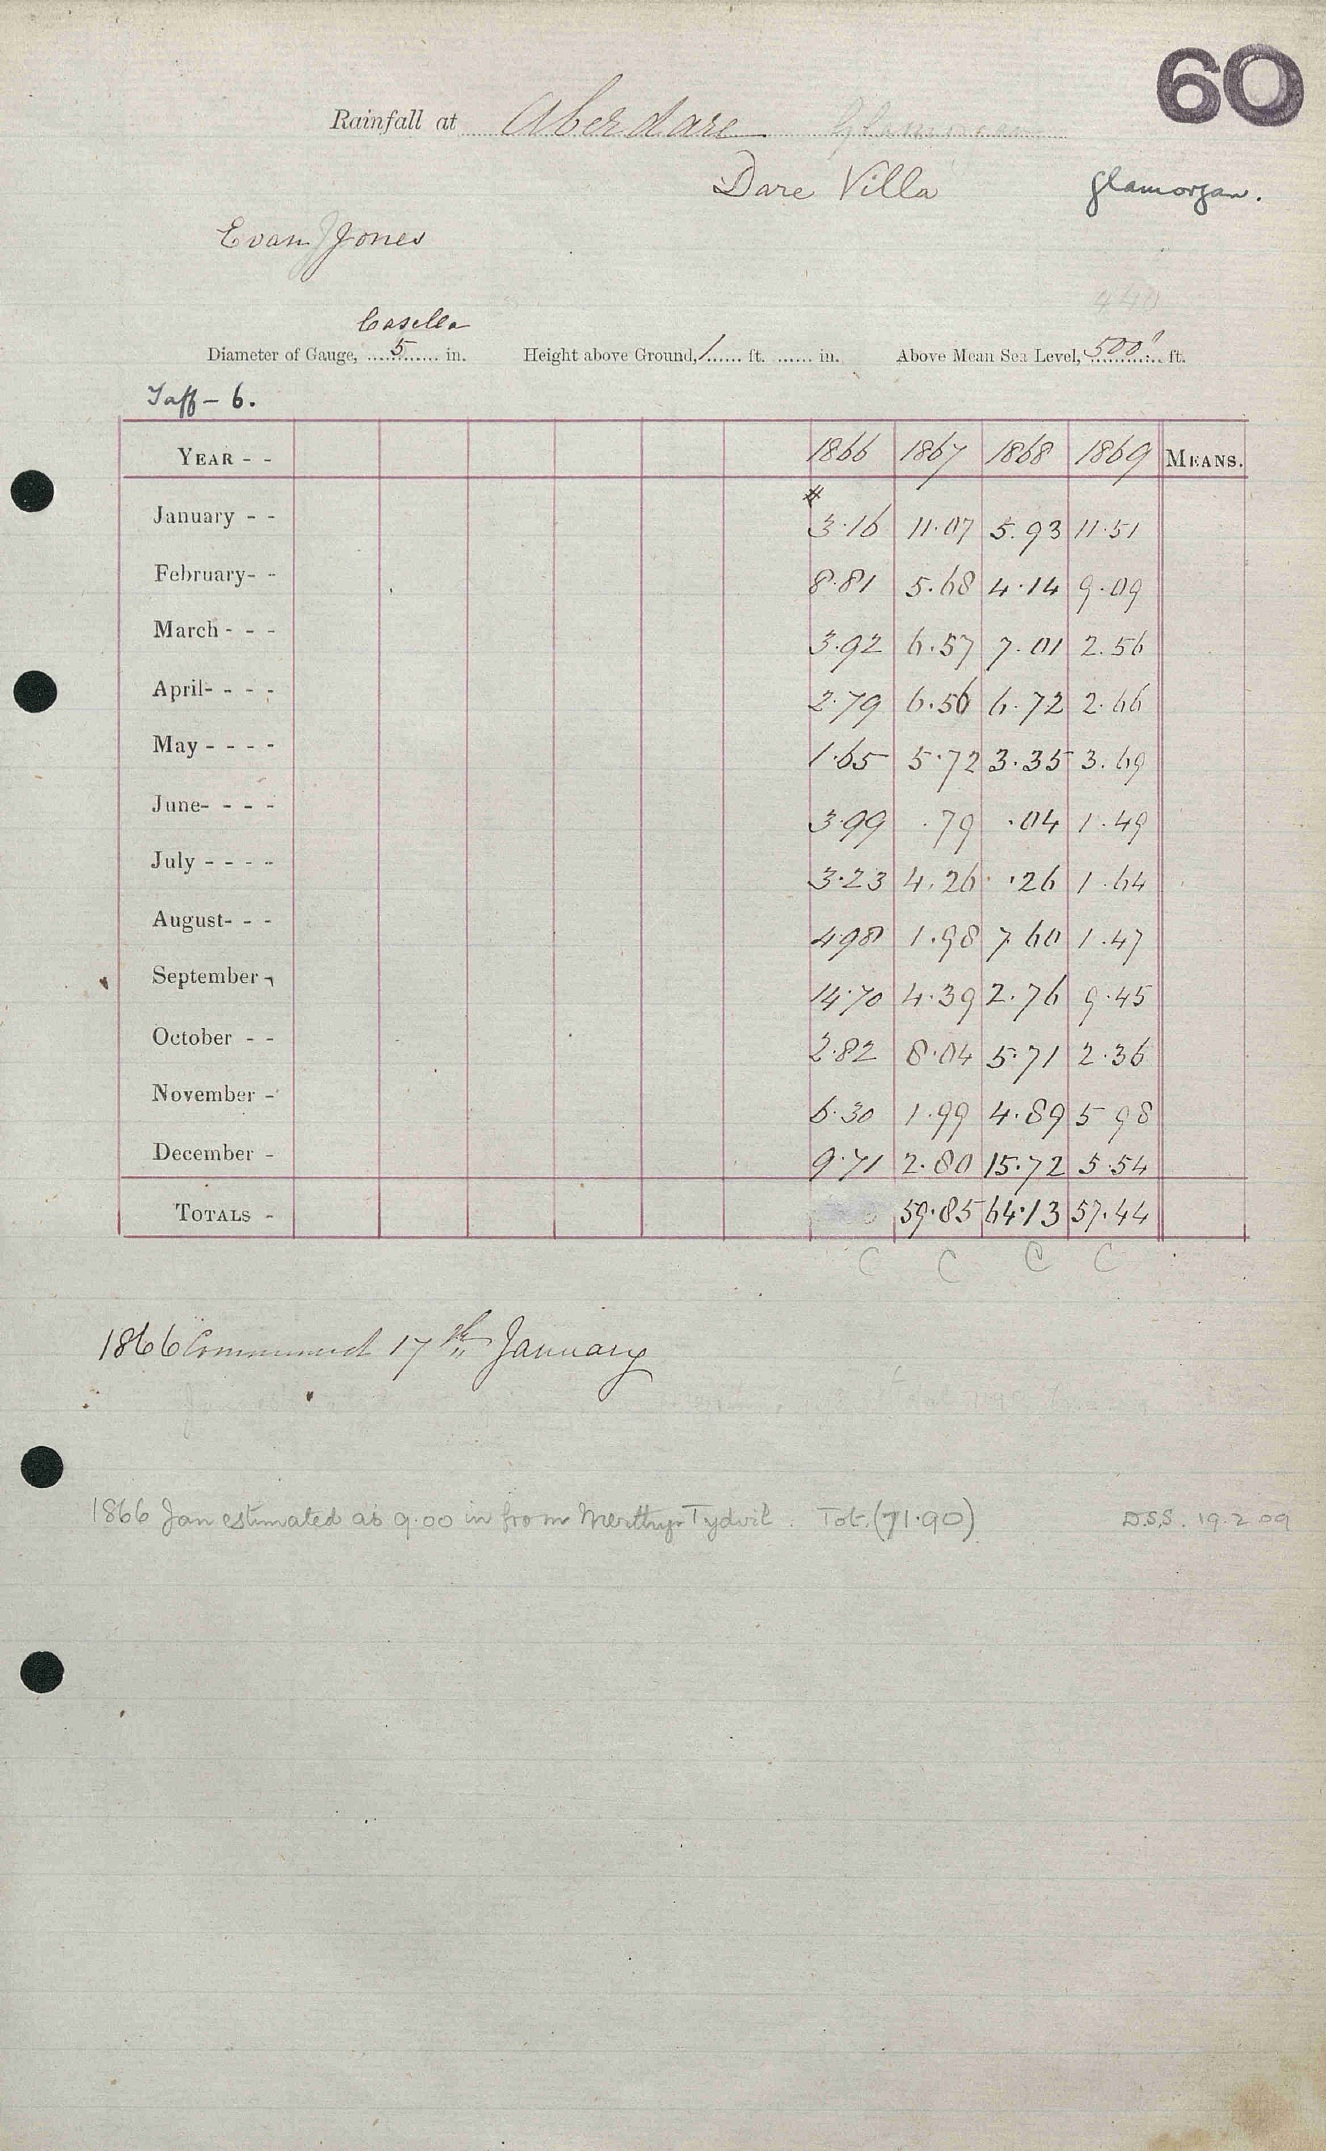 60
Rainfall at Aberdare Glamorgan
Dare Villa Glamorgan.
Evan Jones
Casella
Diameter of Gauge, 5 in. Height above Ground, 1 ft. in. Above Mean Sea Level, 500' ft.
Taff - 6.
YEAR - - 1866 1867 1868 1869 MEANS.
January - - # 3.16 11.07 5.93 11.51
February - - 8.81 5.68 4.14 9.09
March - - - 3.92 6.57 7.01 2.56
April - - - - 2.79 6.56 6.72 2.66
May - - - - 1.65 5.72 3.35 3.69
June - - - - 3.99 .79 .04 1.49
July - - - - 3.23 4.26 .26 1.64
August - - - 4.98 1.98 7.60 1.47
September - 14.70 4.39 2.76 9.45
October - - 2.82 8.04 5.71 2.36
November - 6.30 1.99 4.89 5.98
December - 9.71 2.80 15.72 5.54
TOTALS - 59.85 64.13 57.44
C C C C
1866 Commenced 17th January
1866 Jan estimated as 9.00 in from Merthyr Tydvil. Tot. (71.90) D.S.S. 19.2.09